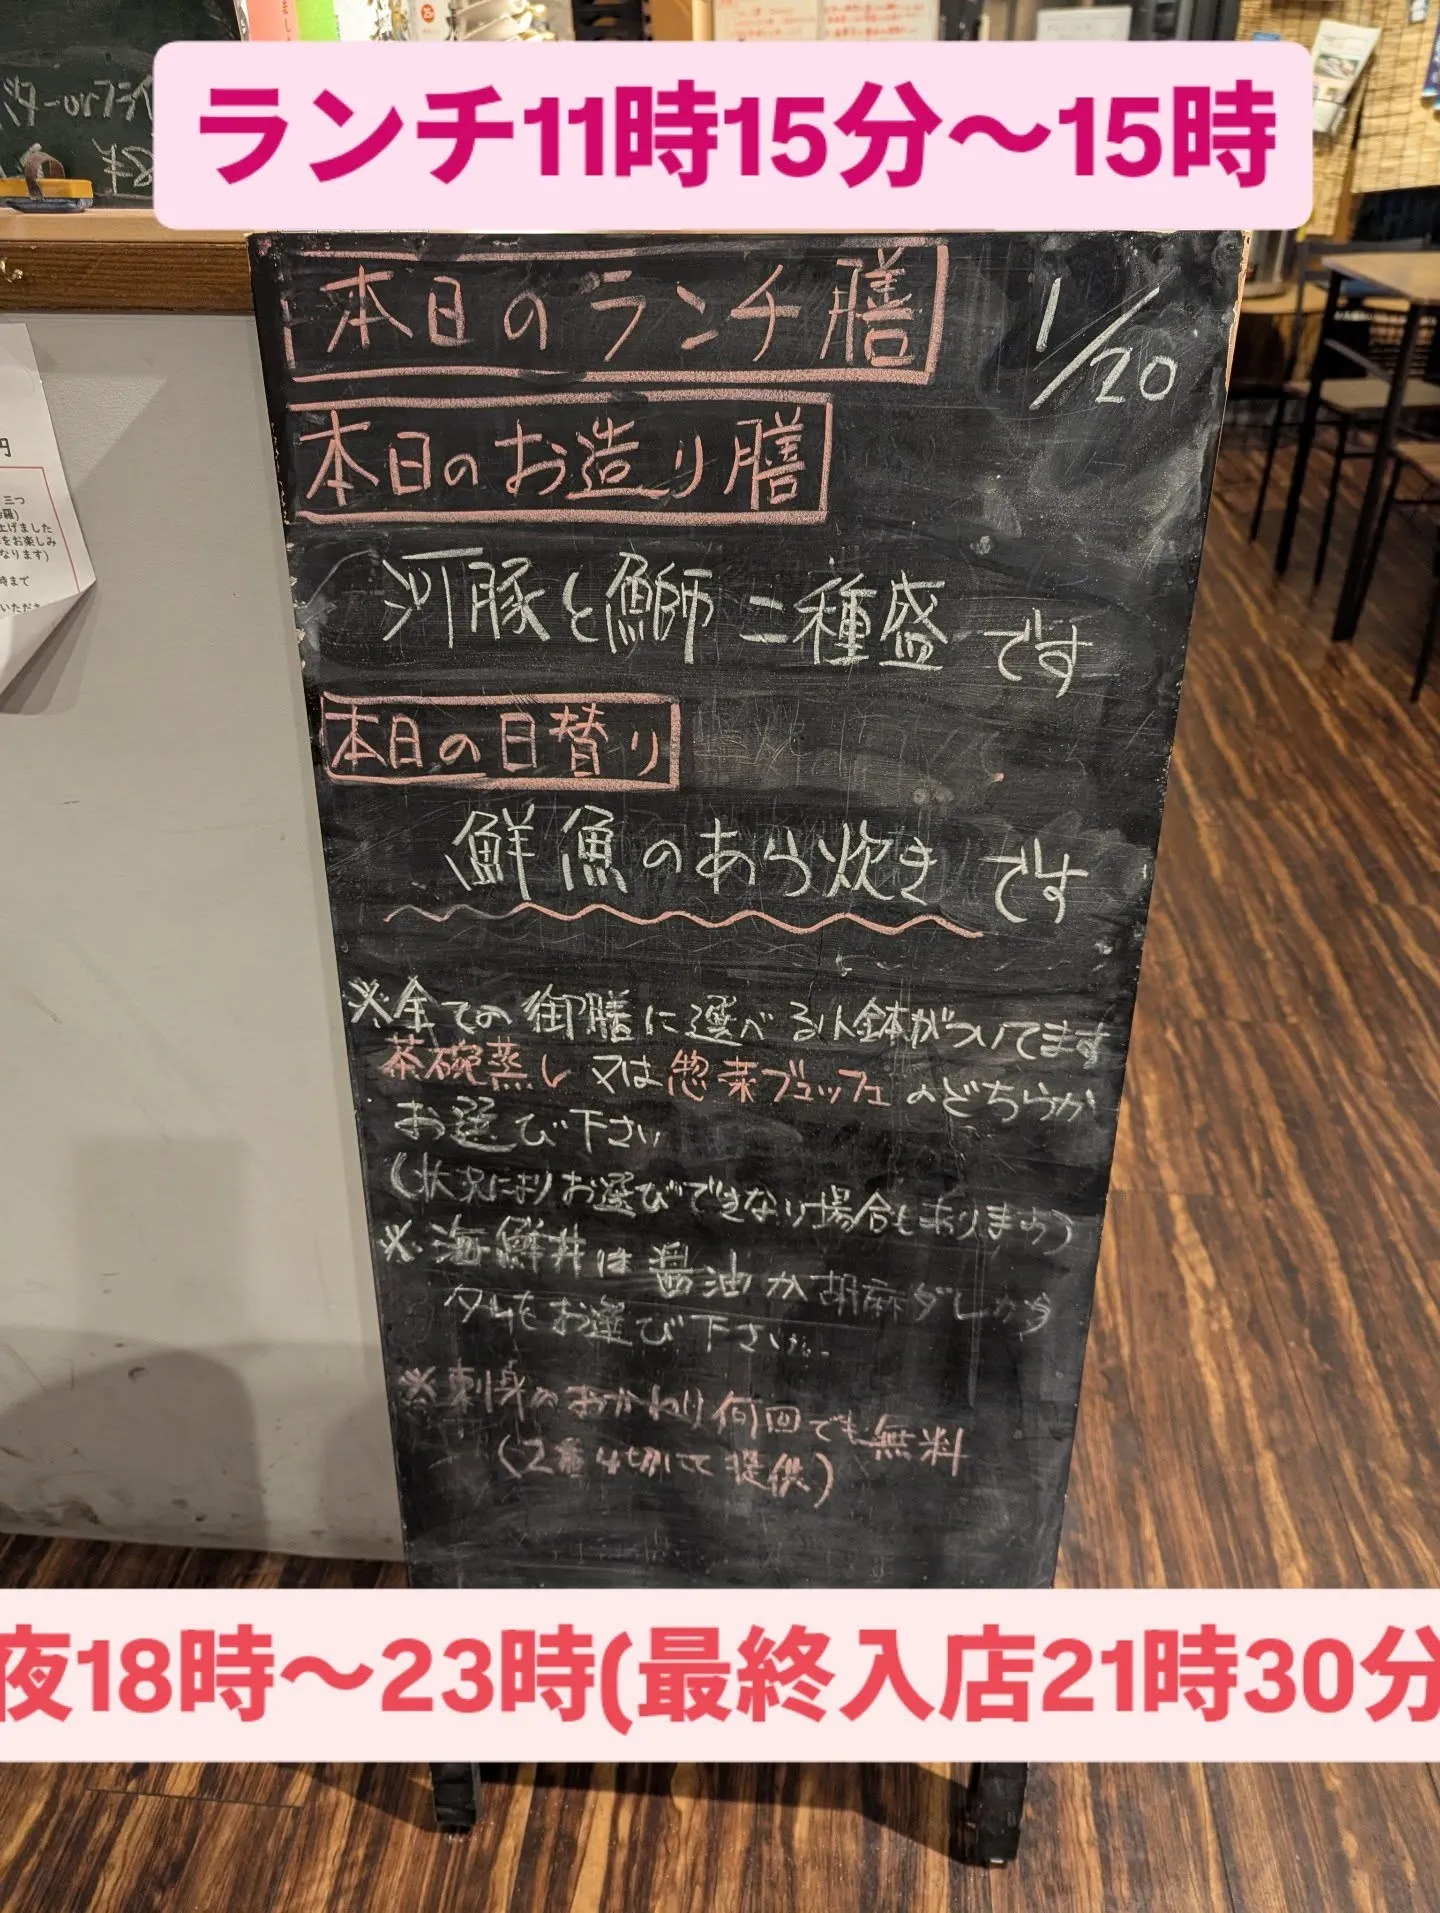 ランチ11時15分～15時
本日のランチ膳
1/20
本日のお造り膳
河豚と鰤二種盛です
本日の日替り
鮮魚のあら炊きです
※全ての御膳に選べる小鉢がついてます
茶碗蒸し又は惣菜ブュッフェのどちらか
お選び下さい
(状況によりお選びできない場合もあります)
※海鮮丼は醤油か胡麻ダレか
お選び下さい
※刺身のおかわり何回でも無料
(2種4切にて提供)
夜18時～23時(最終入店21時30分
円
三つ
上げました
をお楽しみ
なります)
時まで